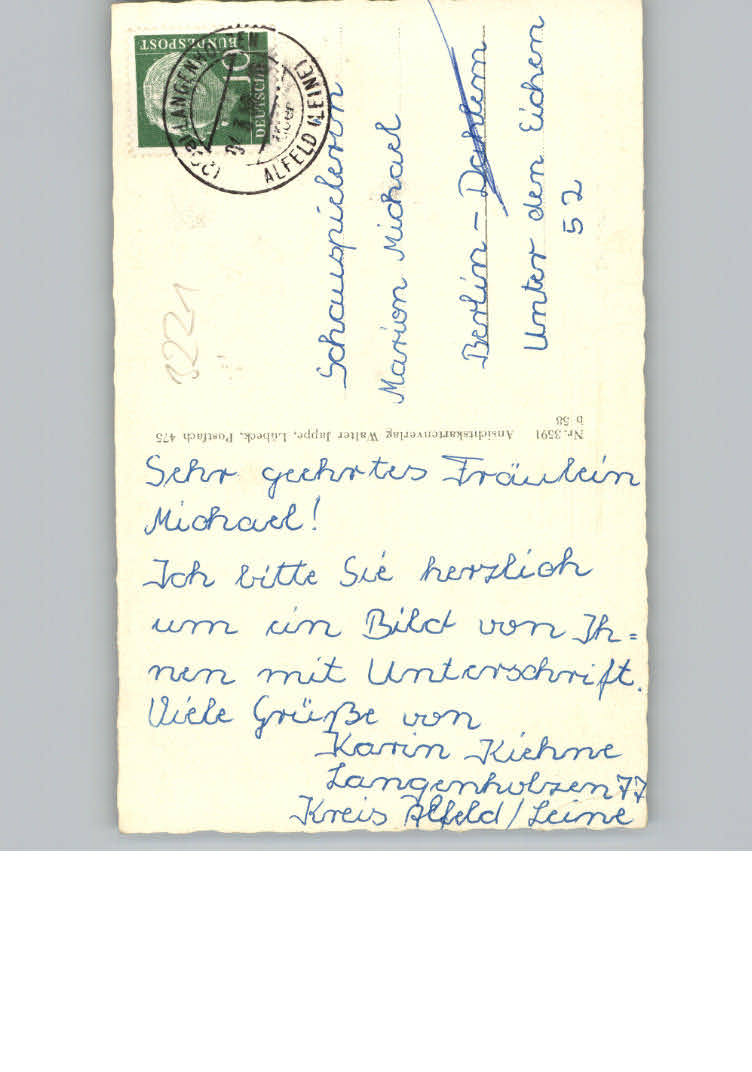 Sehr geehrtes Fräulein
Michael!
Ich bitte Sie herzlich
um ein Bild von Ih=
nen mit Unterschrift.
Viele Grüße von
Karin Kiehne
Langenholzen 77
Kreis Alfeld/Leine
Schauspielerin
Marion Michael
Berlin - Dahlem
Unter den Eichen
52
Nr. 3591 Ansichtskartenverlag Walter Jappe, Lübeck, Postfach 475
b 58
DEUTSCHE
BUNDESPOST
10
ALFELD (LEINE)
3221